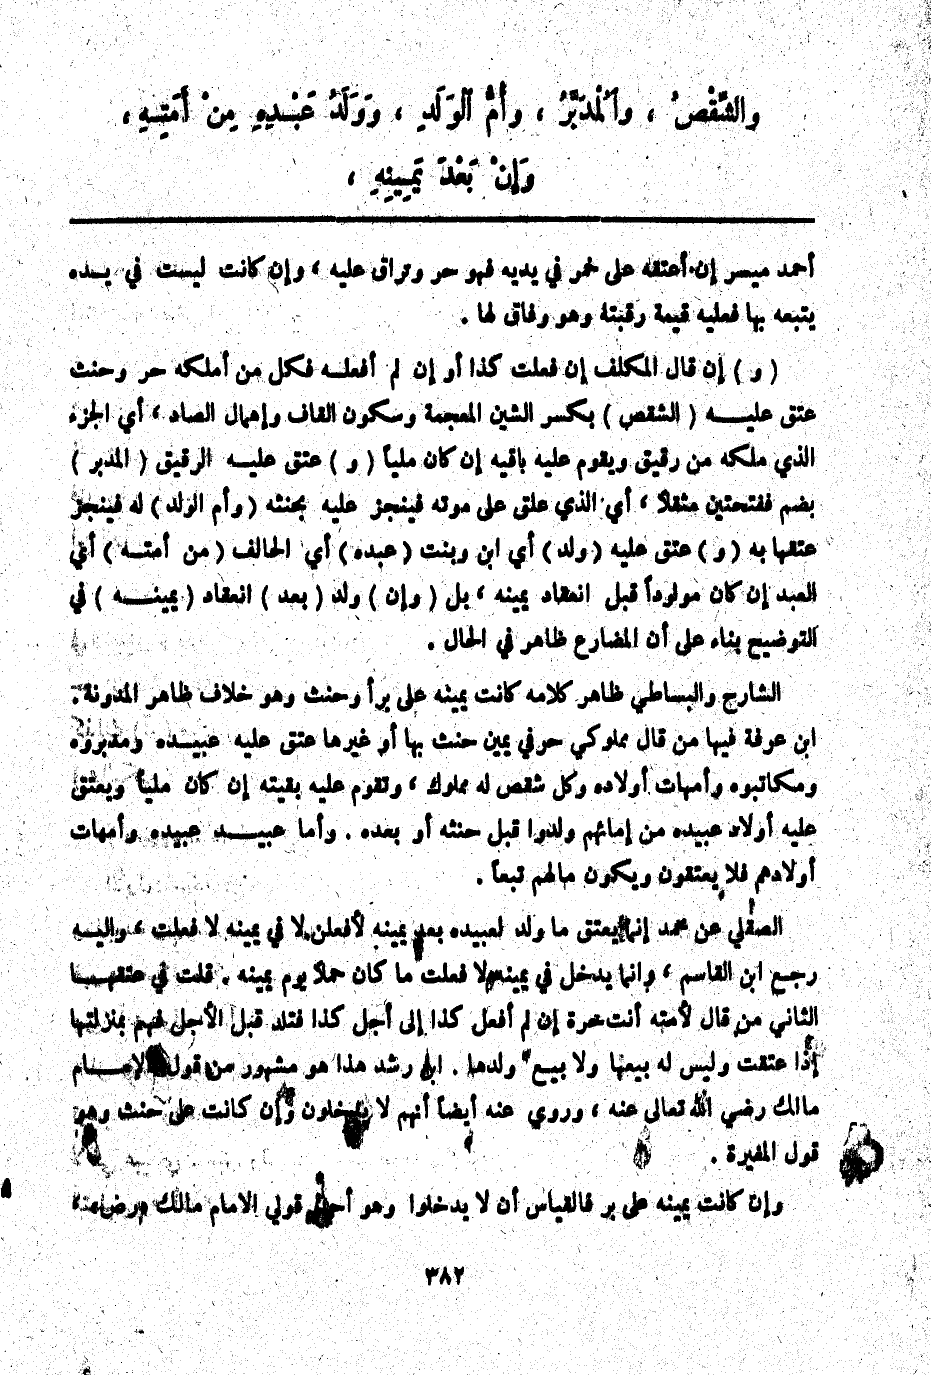 والشِّقْصُ ، وَٱلْمُدَبَّرُ ، وأُمُّ ٱلْوَلَدِ ، وَوَلَدُ عَبْـدِهِ مِنْ أَمَتِـهِ ،
وَإِنْ بَعْدَ يَمِـينِهِ ،
أحمد ميسر إن أعتقه على خمر في يديه فهو حر وتراق عليه ، وإن كانت ليست في يـده
يتبعه بها فعليه قيمة رقبتة وهو وفاق لها .
( و ) إن قال المكلف إن فعلت كذا أو إن لم أفعلـه فكل من أملكه حر وحنث
عتق عليـــه ( الشقص ) بكسر الشين المعجمة وسكون القاف وإهمال الصاد ، أي الجزء
الذي ملكه من رقيق ويقوم عليه باقيه إن كان ملياً ( و ) عتق عليـه الرقيق ( المدبر )
بضم ففتحتين مثقلاً ، أي الذي علق على موته فينجز عليه بحنثه ( وأم الولد ) له فينجز
عتقها به ( و ) عتق عليه ( ولد ) أي ابن وبنت ( عبده ) أي الحالف ( من أمتـه ) أي
العبد إن كان مولوداً قبل انعقاد يمينه ، بل ( وإن ) ولد ( بعد ) انعقاد ( يمينـــه ) في
التوضيح بناء على أن المضارع ظاهر في الحال .
الشارح والبساطي ظاهر كلامه كانت يمينه على برأ وحنث وهو خلاف ظاهر المدونة .
ابن عرفة فيها من قال مملوكي حر في يمين حنث بها أو غيرها عتق عليه عبيـده ومدبروه
ومكاتبوه وأمهات أولاده وكل شقص له مملوك ، وتقوم عليه بقيته إن كان ملياً ويعتق
عليه أولاد عبيده من إمائهم ولدوا قبل حنثه أو بعده . وأما عبيـــد عبيده وأمهات
أولادهم فلا يعتقون ويكون مالهم تبعاً .
الصقلي عن محمد إنما يعتق ما ولد لعبيده بعد يمينه لأفعلن لا في يمينه لا فعلت ، واليـه
رجع ابن القاسم ، وانما يدخل في يمينه لا فعلت ما كان حملا يوم يمينه . قلت في عتقهـا
الثاني من قال لأمته أنت حرة إن لم أفعل كذا إلى أجل كذا فتلد قبل الأجل فهم بمنزلتها
إذا عتقت وليس له بيعها ولا بيع ولدها . ابن رشد هذا هو مشهور من قول الإمـــام
مالك رضي الله تعالى عنه ، وروي عنه أيضاً أنهم لا يدخلون وإن كانت على حنث وهو
قول المغيرة .
وإن كانت يمينه على بر فالقياس أن لا يدخلوا وهو أحد قولي الامام مالك
٣٨٢